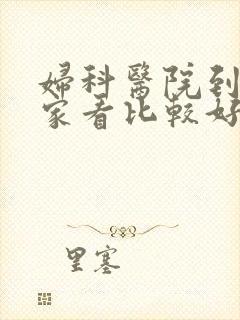 婦科醫院到
家看比較好
里塞